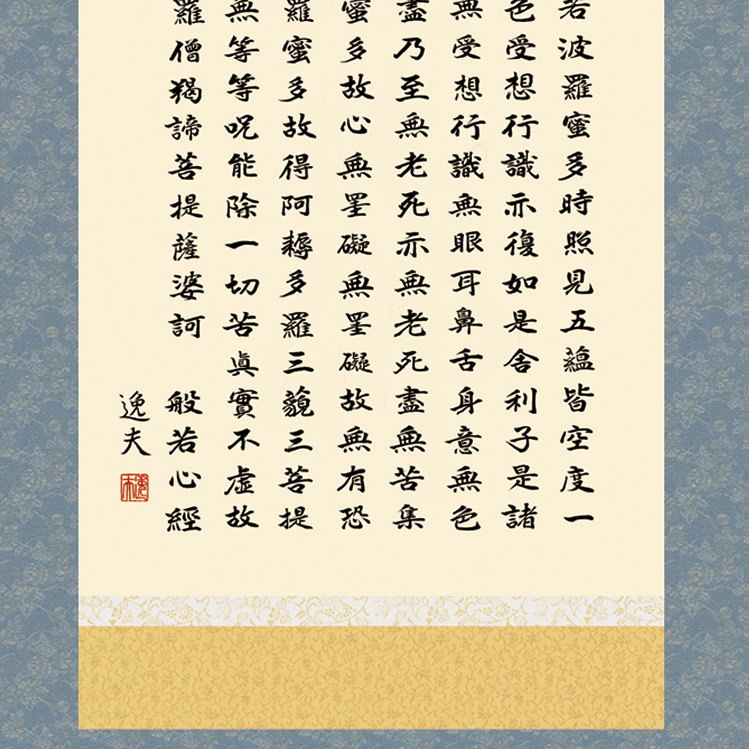 若波羅蜜多時照見五蘊皆空度一
色受想行識亦復如是舍利子是諸
無受想行識無眼耳鼻舌身意無色
盡乃至無老死亦無老死盡無苦集
蜜多故心無罣礙無罣礙故無有恐
羅蜜多故得阿耨多羅三藐三菩提
無等等呪能除一切苦眞實不虚故
羅僧羯諦菩提薩婆訶 般若心經
逸夫